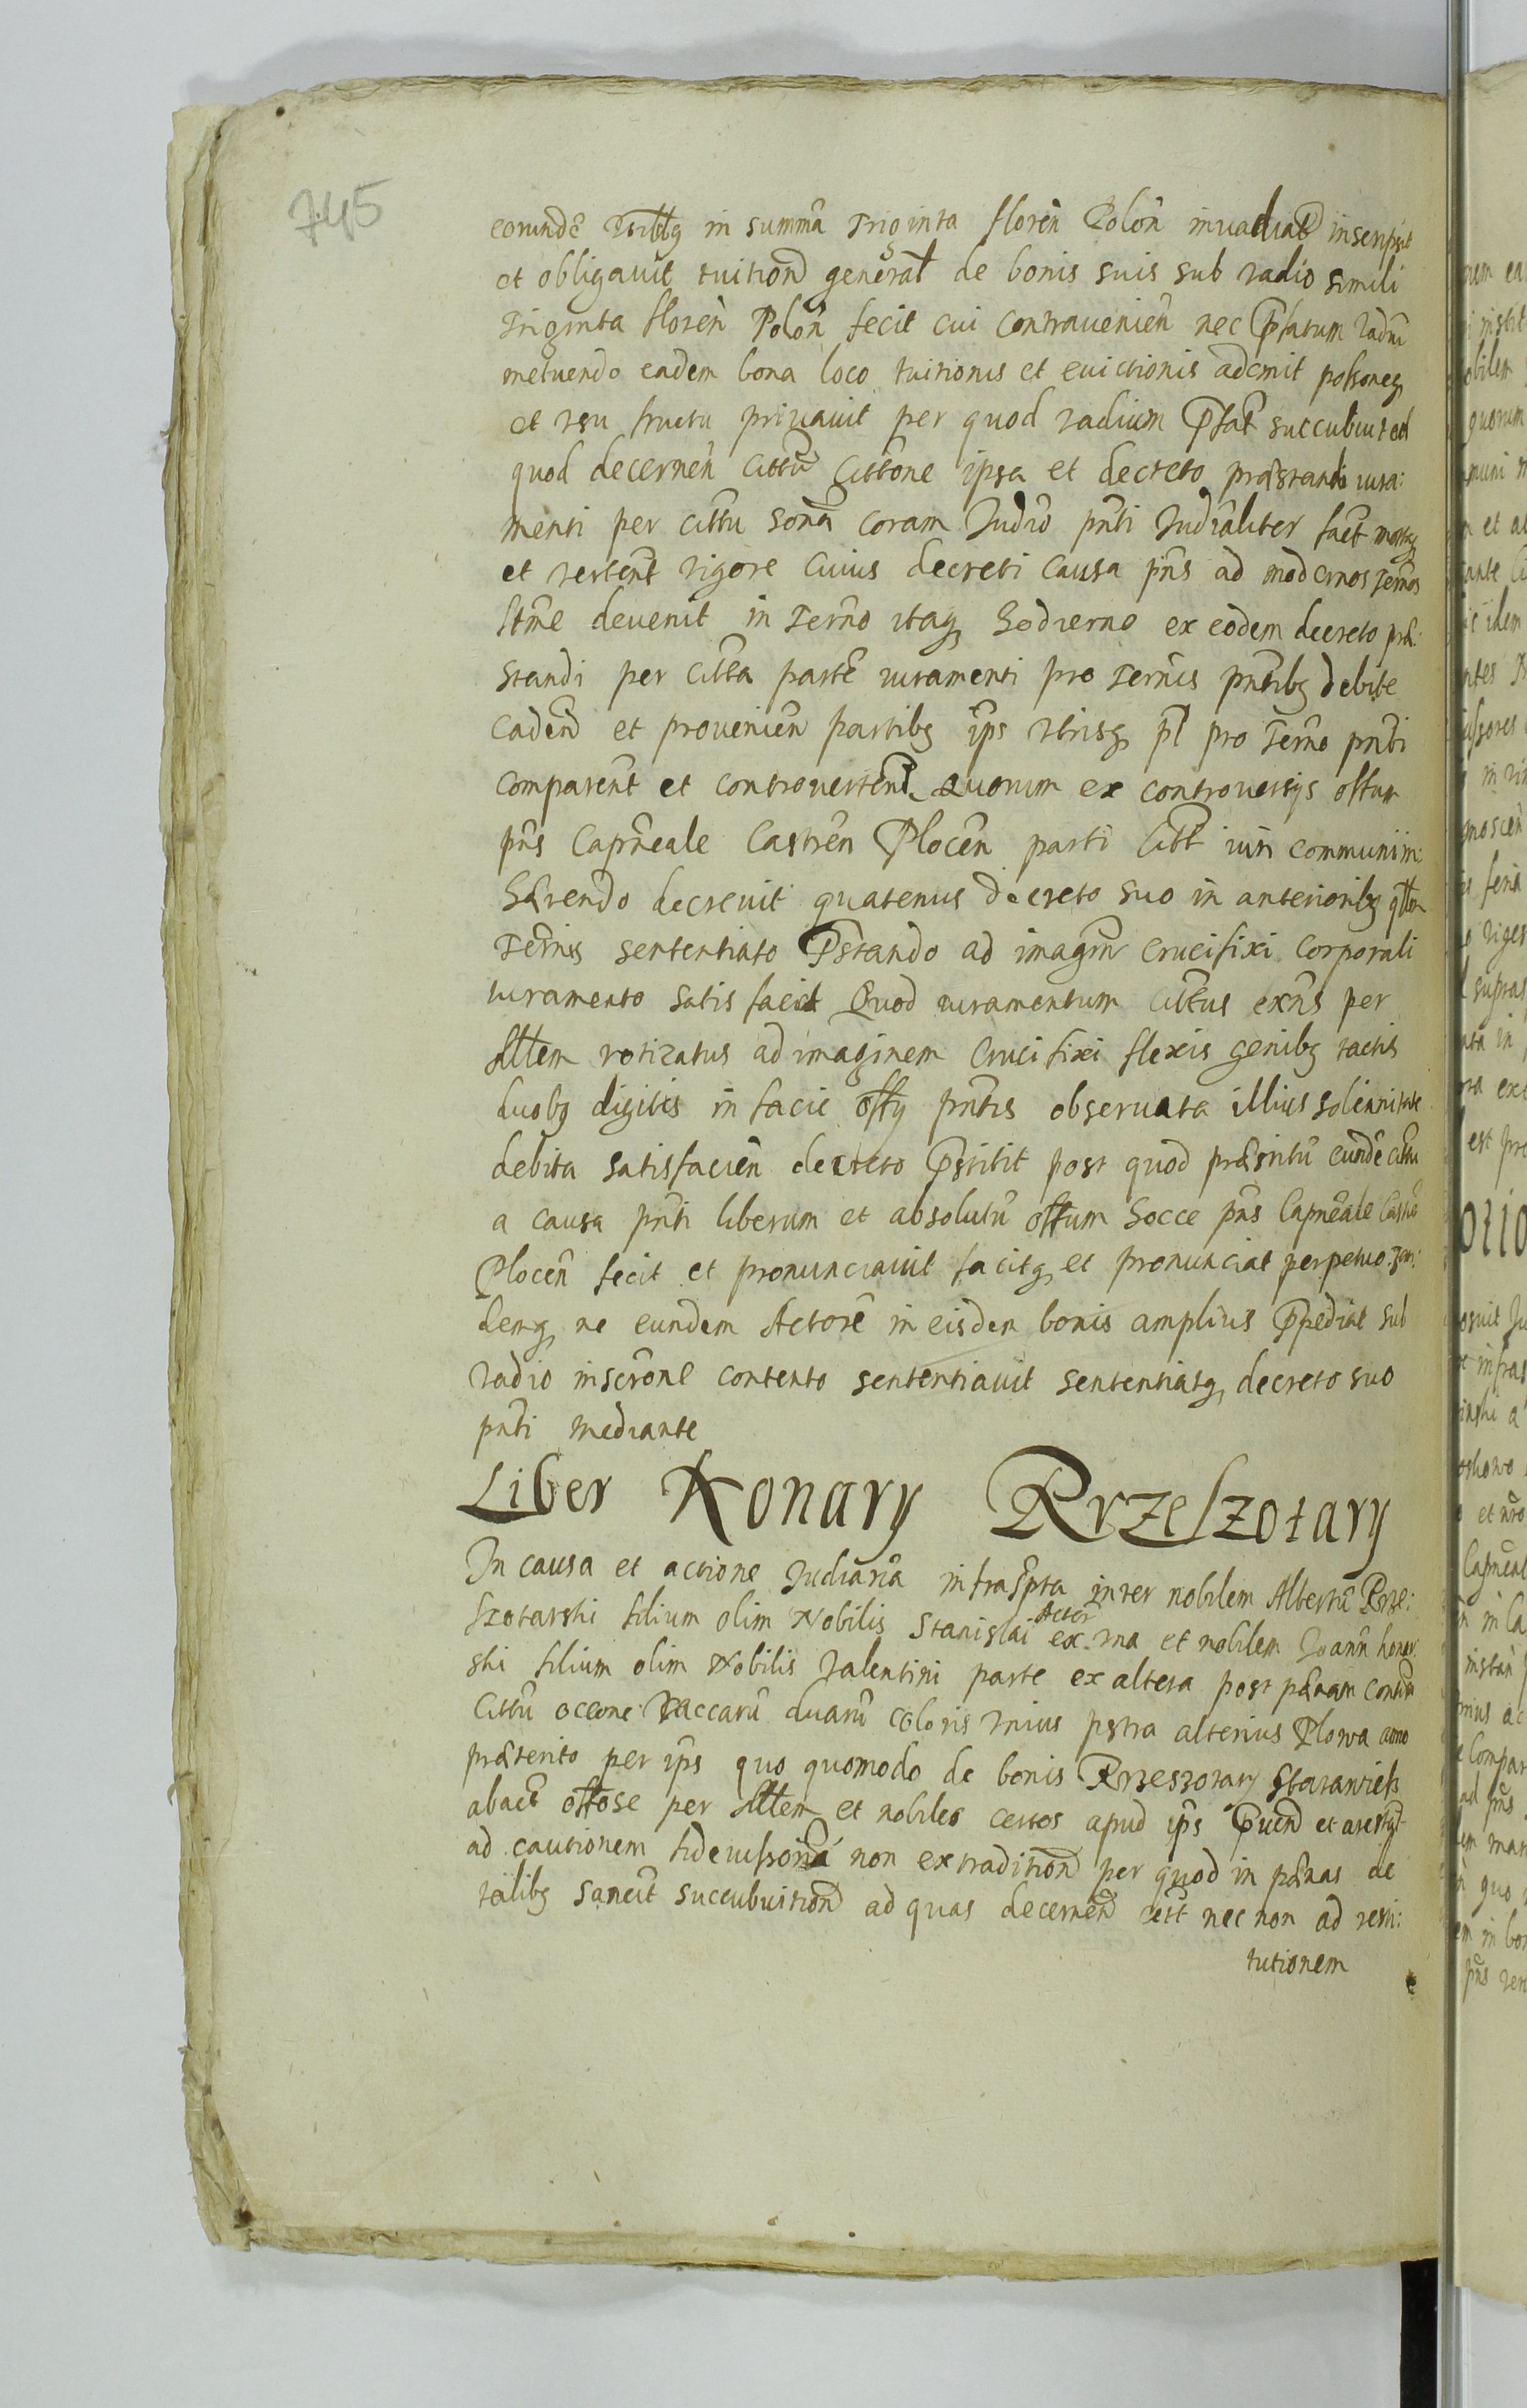 745
eorundē in summā Triginta floreñ Poloñ inuadiat inscripsit
et obligauit tuition general de bonis suis sub vadio simili
Triginta floreñ Poloñ fecit cui contrauenieñ nec Pfatum vadiū
metuendo eadem bona loco tuitionis et euictionis ademit possoneq
et vsu fructu priuauit per quod vadium Pfat succubuit ad
quod decerneñ Citũ Cittone ipsa et decreto præstandi iura:
menti per citũ coram Judio pnti Judialiter fact
et vertent rigore Cuius decreti causa pns ad modernos Termos
ltme deuenit in Termo itaq hodierno ex eodem decreto præ:
standi per Citta parte iuramenti pro Termis pntibq debite
Caden et proueniẽn partibq ips vtrisq pl pro Termo pnti
comparent et controuertent. Quorum ex controuersys offum
pns Capneale Castren Plocen parti Citt iuri communi in:
hærendo decreuit quatenus decreto suo in anterioribq
Termis sententiato Pstando ad imagem Crucifixi Corporali
iuramento satis faciat Quod iuramentum Citus exns per
Mttem rotizatus ad imaginem Crucifixi flexis genibq tactis
duobq digitis in facie offy pntis obseruata illius solennitate
debita satisfacien decreto Pstitit post quod præstitũ eundẽ citũ
a causa pnti liberum et absolutũ offum hocce pns Capneale Castrẽ
Plocen fecit et pronunciauit facitq et pronunciat perpetuo. Tan:
demq ne eundem Actorẽ in eisdem bonis amplius Ppediat sub
vadio inscrone contento sententiauit sententiatq decreto suo
pnti mediante
Liber Konary Przeszotary
In causa et actione Judiaria infraspta inter nobilem Albertũ Prze:
szotarski filium olim Nobilis Stanislai Actor ex vna et nobilem Joann konar
ski filium olim Nobilis Valentini parte ex altera post pænam
Citũ occone Vaccarũ duarũ coloris vnius pstra alterius Plowa anno
præterito per ips quo quomodo de bonis Przeszotary
abact offose per Mttem et nobiles certos apud ips
ad cautionem fideiussoria non extradition per quod in pænas de
talibq sancit succubuition ad quas decernen citt nec non ad resti:
tutionem